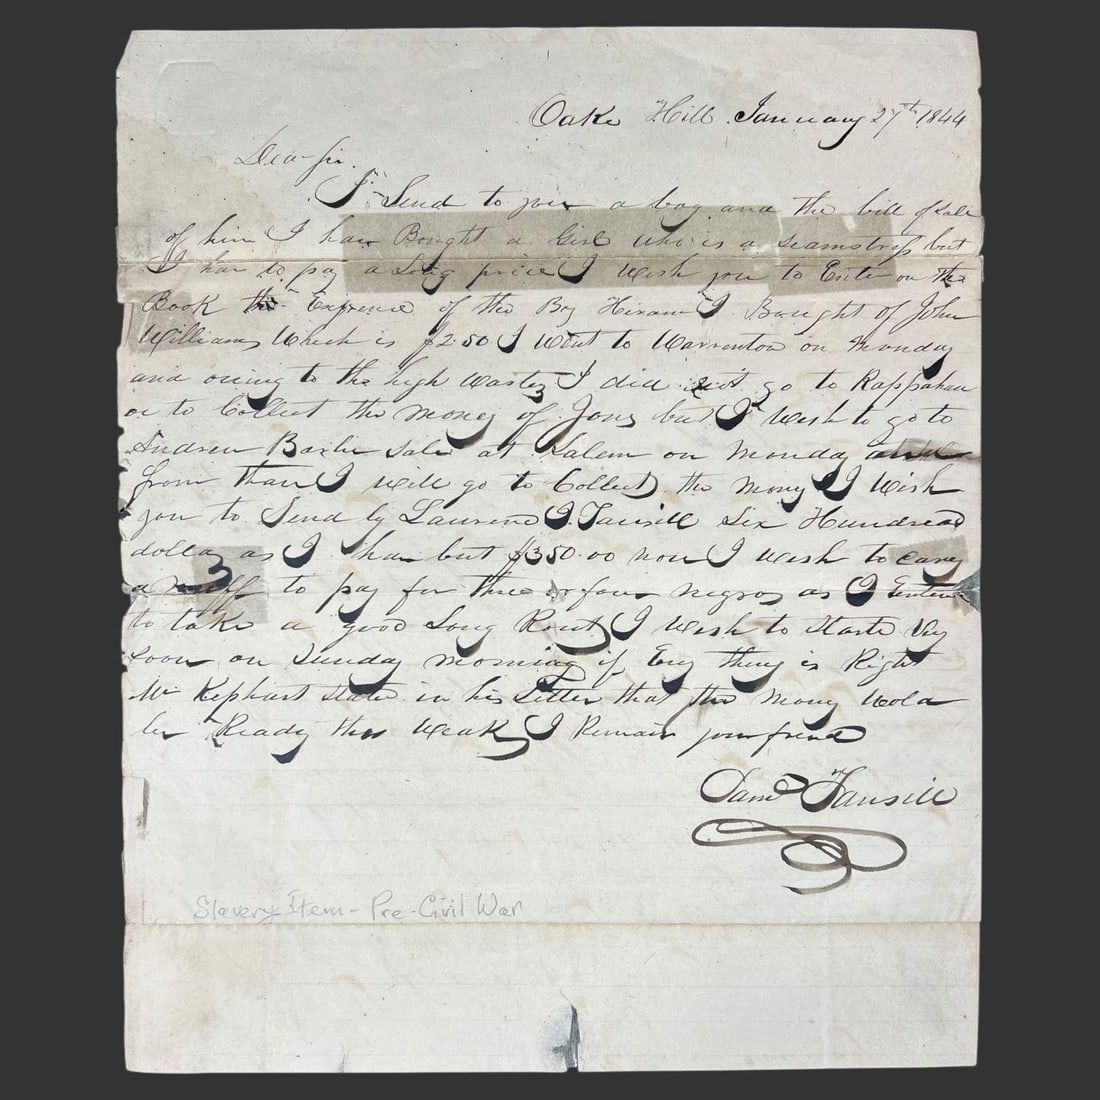 Oake Hill January 27th 1844
Dear Sir
I Send to you a boy and the bill of Sale
of him I have Bought a Girl who is a Seamstress but
I hav to pay a Long price I Wish you to Enter on the
Book the Expence of the Boy Hiram I Baught of John
Williams Which is $2.50 I Went to Warrenton on Monday
and owing to the high Waters I did not go to Rappahan
oc to Collect the money of Jones but I Wish to go to
Andrew Barbe Sale at Salem on Monday and
from than I will go to Collect the Money I Wish
you to Send by Laurence Tansill Six Hundread
dollas as I hav but $350.00 now I Wish to
to pay for three or four negros as I
to take a good Long Rout I Wish to Starte Vry
Soon on Sunday morning if Evry thing is Right
Mr Kephart State in his Letter that the Mony Wold
be Ready this Weak I Remain your friend
Saml Tansill
Slavery Item - Pre-Civil War